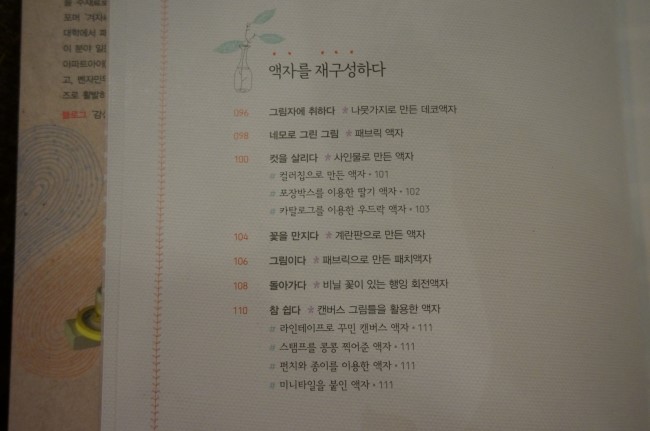 포머 '거자
대학에서 패
이 분야 일
아파트아이
고, 렌자민의
즈로 활발하
블로그 '감성
액자를 재구성하다
096 그림자에 취하다 * 나뭇가지로 만든 데코액자
098 네모로 그린 그림 * 패브릭 액자
100 컷을 살리다 * 사인물로 만든 액자
# 컬러칩으로 만든 액자 • 101
# 포장박스를 이용한 딸기 액자 • 102
# 카탈로그를 이용한 우드락 액자 • 103
104 꽃을 만지다 * 계란판으로 만든 액자
106 그림이다 * 패브릭으로 만든 패치액자
108 돌아가다 * 비닐 꽃이 있는 행잉 회전액자
110 참 쉽다 * 캔버스 그림틀을 활용한 액자
# 라인테이프로 꾸민 캔버스 액자 • 111
# 스탬프를 콩콩 찍어준 액자 • 111
# 펀치와 종이를 이용한 액자 • 111
# 미니타일을 붙인 액자 • 111